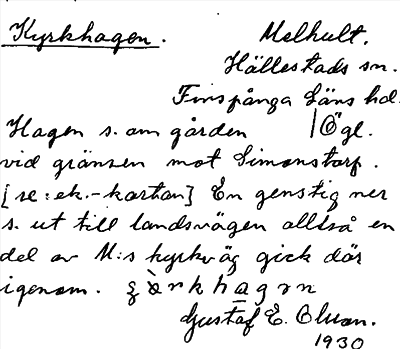 Kyrkhagen. Melhult.
Hällestads sn.
Finspånga läns hd.
Hagen s. om gården Ögl.
vid gränsen mot Simonstorp.
[se: ek.-kartan] En genstig ner
s. ut till landsvägen alltså en
del av M:s kyrkväg gick där
igenom.
Gustaf E. Olson.
1930